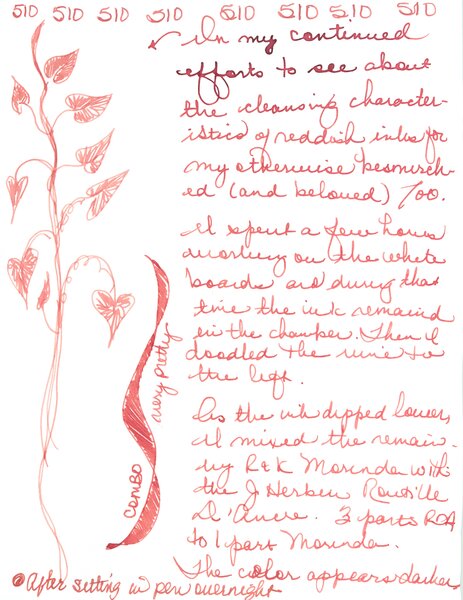 510 510 510 510 510 510 510 510
In my continued
efforts to see about
the cleansing character-
istics of reddish inks for
my otherwise besmirch-
ed (and beloved) 700.
I spent a few hours
working on the white
boards and during that
time the ink remained
in the chamber. Then I
doodled the vine to
the left.
very pretty
combo
As the ink dipped lower,
I mixed the remain-
ing R&K Morinda with
the J Herbin Rouille
D'Ancre. 3 parts RDA
to 1 part Morinda.
The color appears darker
After sitting in pen overnight